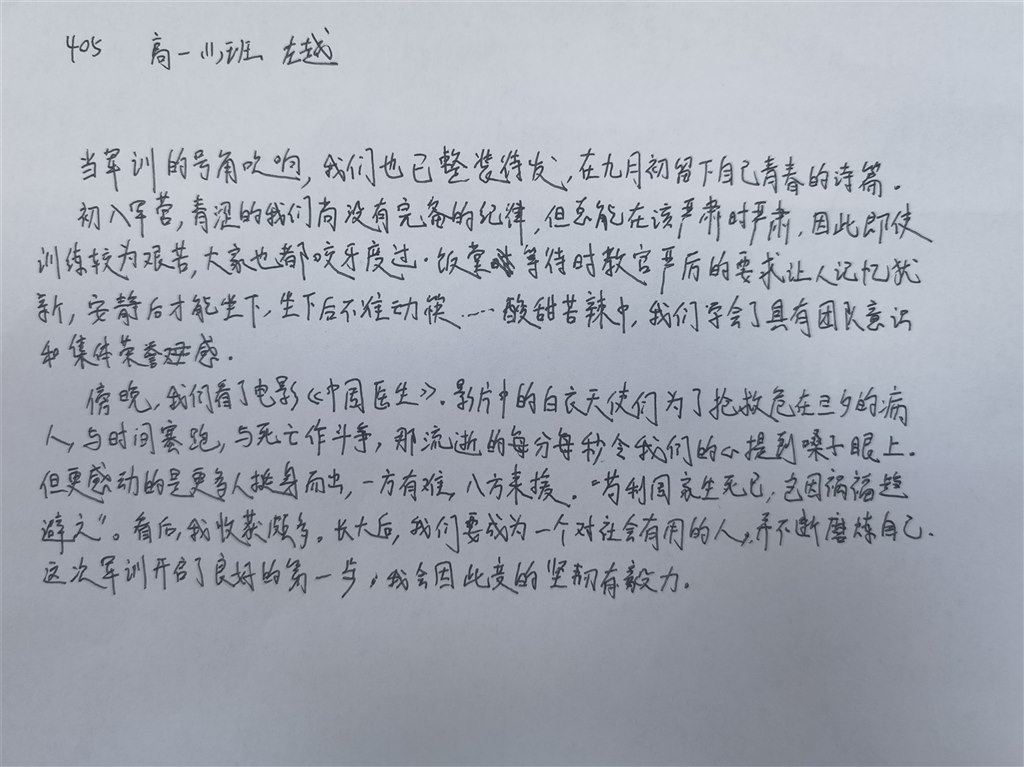 405 高一(1)班 左越
当军训的号角吹响,我们也已整装待发,在九月初留下自己青春的诗篇.
初入军营,青涩的我们尚没有完备的纪律,但总能在该严肃时严肃,因此即使
训练较为艰苦,大家也都咬牙度过.饭堂等待时教官严厉的要求让人记忆犹
新,安静后才能坐下,坐下后不准动筷……酸甜苦辣中,我们学会了具有团队意识
和集体荣誉感.
傍晚,我们看了电影《中国医生》.影片中的白衣天使们为了抢救危在旦夕的病
人,与时间赛跑,与死亡作斗争,那流逝的每分每秒令我们的心提到嗓子眼上.
但更感动的是更多人挺身而出,一方有难,八方来援."苟利国家生死已,岂因祸福趋
避之"。看后,我收获颇多.长大后,我们要成为一个对社会有用的人,并不断磨炼自己.
这次军训开启了良好的第一步,我会因此变的坚韧有毅力.